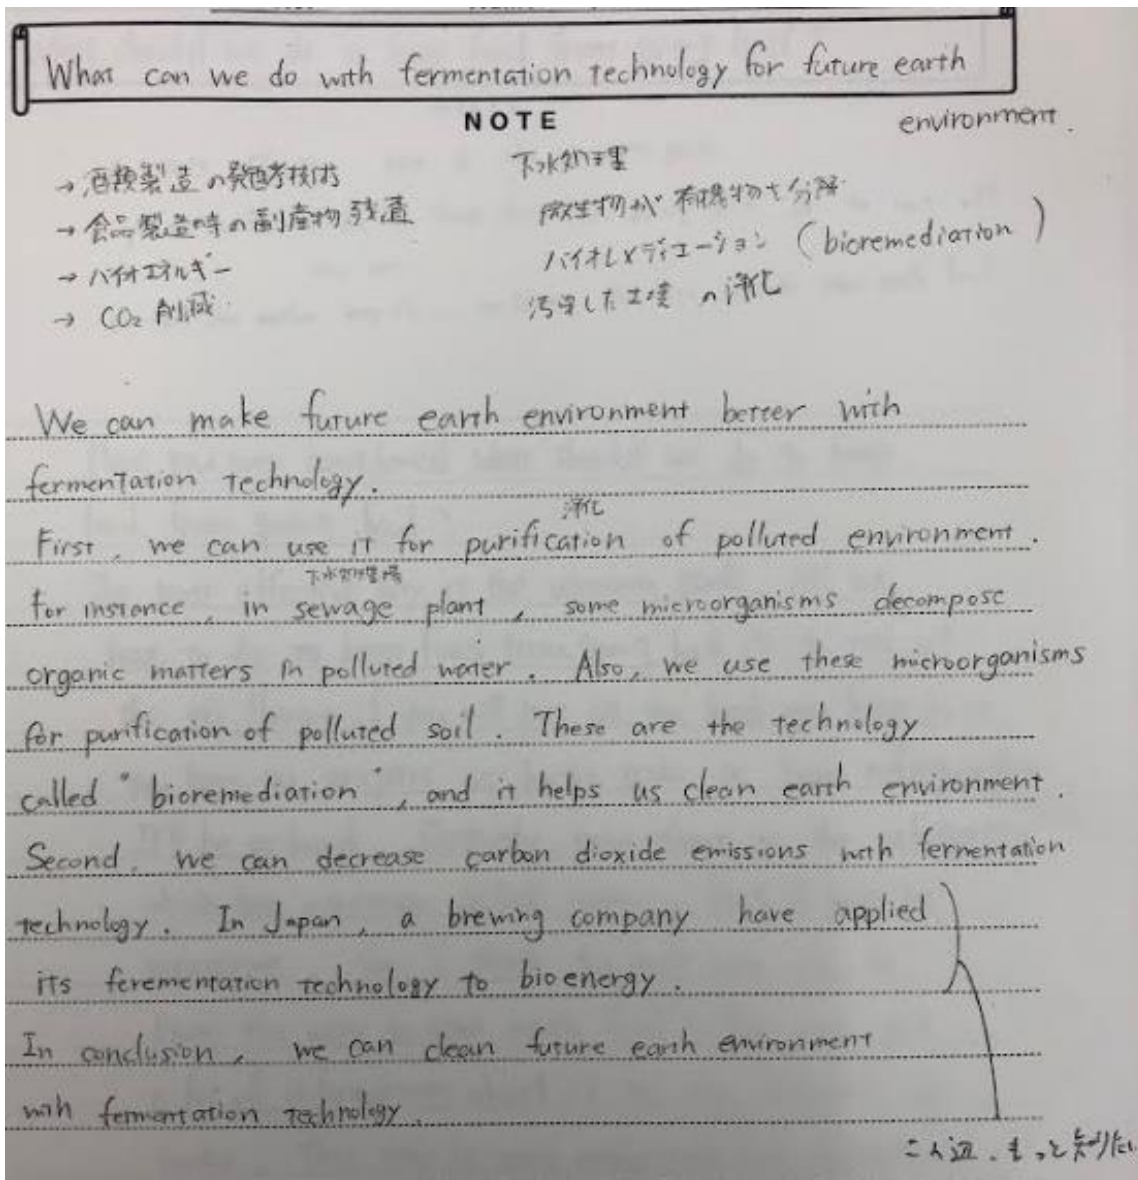 What can we do with fermentation technology for future earth
environment.
NOTE
→ 酒類製造の発酵技術
→ 食品製造時の副産物 残渣
→ バイオエネルギー
→ CO₂ 削減
下水処理
微生物が 有機物を分解
バイオレメディエーション (bioremediation)
汚染した土壌 の浄化
We can make future earth environment better with
fermentation technology.
浄化
First, we can use it for purification of polluted environment.
下水処理場
for instance, in sewage plant, some microorganisms decompose
organic matters in polluted water. Also, we use these microorganisms
for purification of polluted soil. These are the technology
called "bioremediation", and it helps us clean earth environment.
Second, we can decrease carbon dioxide emissions with fermentation
technology. In Japan, a brewing company have applied
its ferementation technology to bioenergy.
In conclusion, we can clean future earth environment
with fermentation technology.
この辺、もっと知りたい